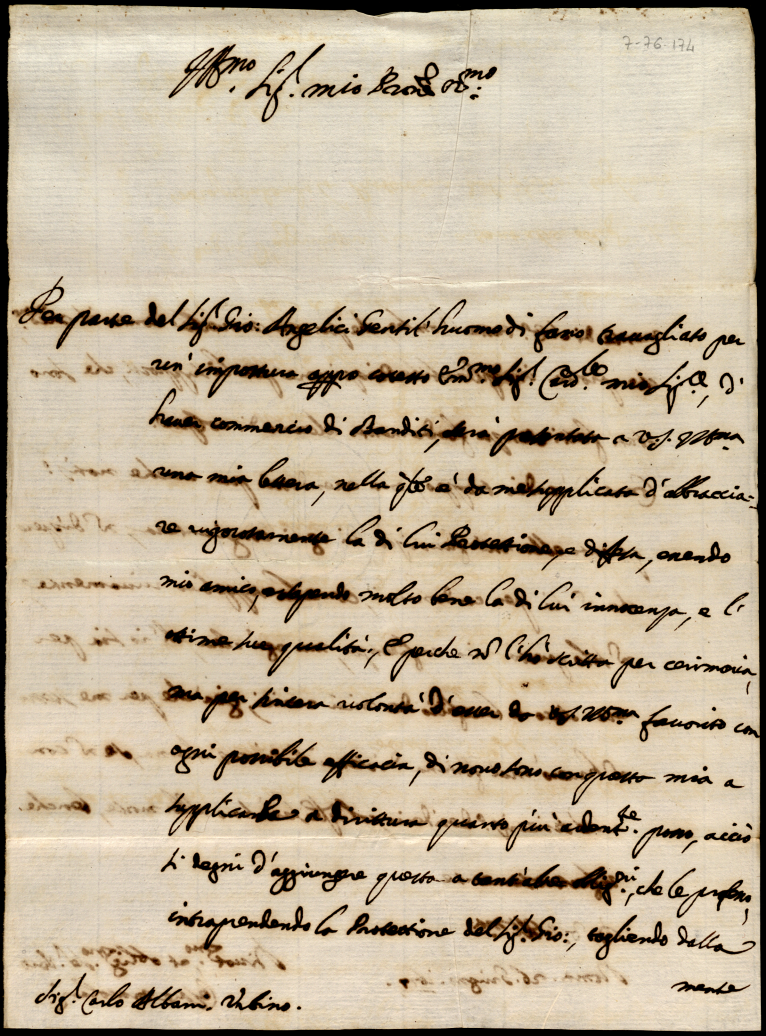 7-76-174
Ill.mo Sig.r mio Pron.e Col.mo
Per parte del Sig.r Gio: Angelici Gentil'huomo di fano travagliato per
un' impostura appo cotesto Em.mo Sig.r Card.le mio Sig.re, d'
haver commercio di Banditi, sarà presentata a V.S. Ill.ma
una mia lettera, nella q.le è da me supplicata d'abbraccia-
re vigorosamente la di lui Protettione, e difesa, essendo
mio amico, e sapendo molto bene la di lui innocenza, e l'
ottime sue qualità; E perche nō l'hò scritta per cerimonia,
ma per sincera volontà d'esser da V.S. Ill.ma favorito con
ogni possibile efficacia, di novo sono con questa mia a
supplicarla a dirittura quanto più ardent.te posso, acciò
si degni d'aggiungere questa a tant'altre oblig.ni, che le professo,
intraprendendo la Protettione del Sig.r Gio:, togliendo dalla
mente
Sig.r Carlo Albani. Urbino.